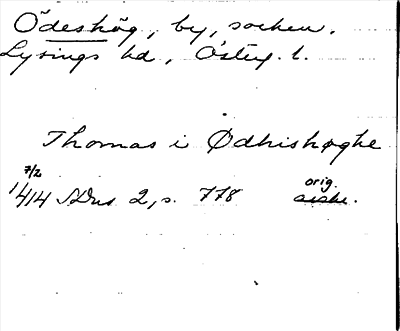 Ödeshög, by, socken,
Lysings hd, Östg. l.
Thomas i Ødhishøghe
7/2
1414 SDns 2, s. 778 orig.